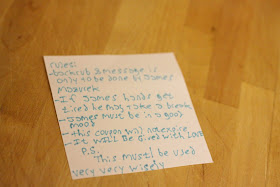 rules:
-backrub & message is
only to be done by James
Maavich
-If James hands get
tired he may take a break
-James must be in a good
mood
-this coupon will not expire
-It will be given with LOVE
P.S.
This must be used
very very wisely